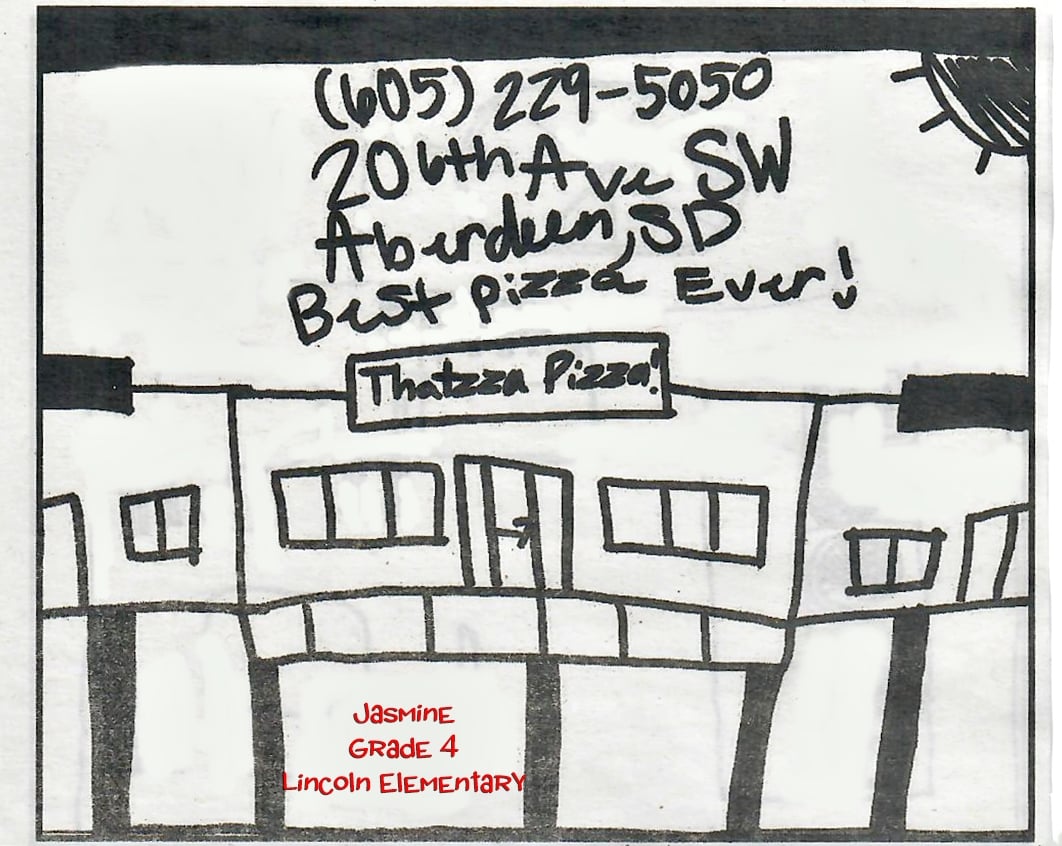 (605) 229-5050
20 6th Ave SW
Aberdeen, SD
Best pizza Ever!
Thatzza Pizza!
Jasmine
Grade 4
Lincoln Elementary